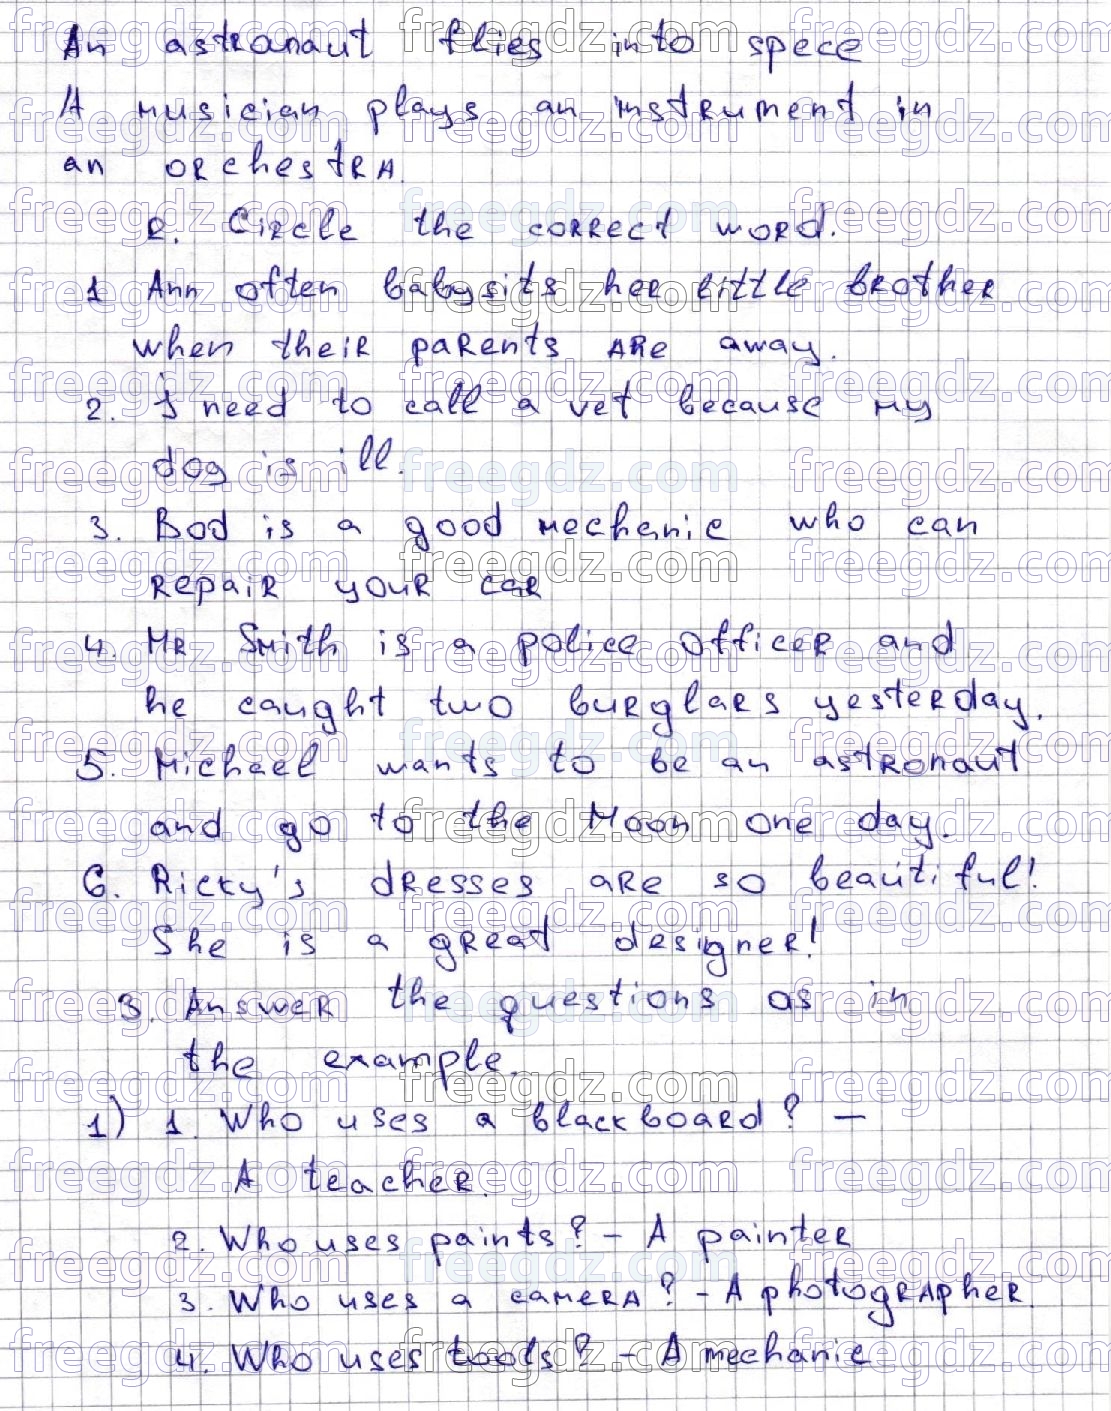 An astronaut flies into spece
A musician plays an instrument in
an orchestra.
2. Circle the correct word.
1 Ann often babysits her little brother
when their parents are away.
2. I need to call a vet because my
dog is ill.
3. Bod is a good mechanic who can
repair your car
4. Mr Smith is a police officer and
he caught two burglars yesterday.
5. Michael wants to be an astronaut
and go to the Moon one day.
6. Ricky's dresses are so beautiful!
She is a great designer!
3. Answer the questions as in
the example.
1) 1. Who uses a blackboard? –
A teacher.
2. Who uses paints? – A painter
3. Who uses a camera? – A photographer.
4. Who uses tools? – A mechanic